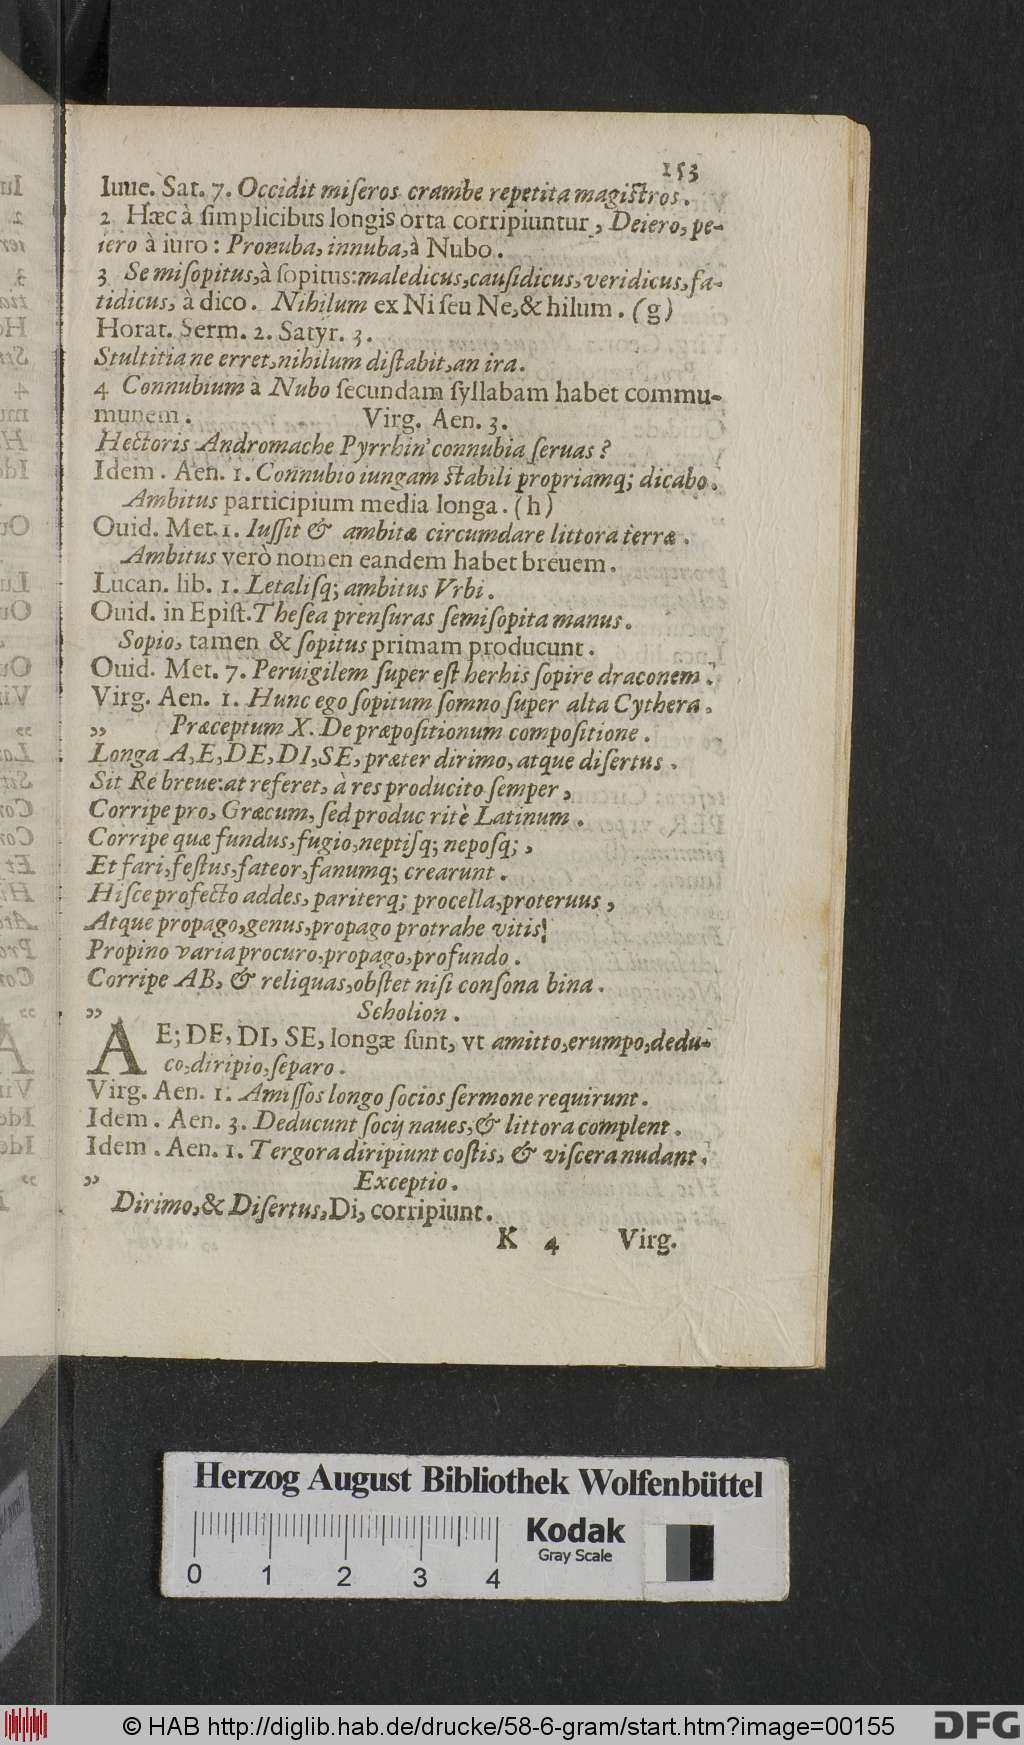 153
Iuue. Sat. 7. Occidit miſeros crambe repetita magiſtros.
2 Hæc à ſimplicibus longis orta corripiuntur, Deiero, pe-
iero à iuro: Pronuba, innuba, à Nubo.
3 Semiſopitus, à ſopitus: maledicus, cauſidicus, veridicus, fa-
tidicus, à dico. Nihilum ex Ni ſeu Ne, & hilum. (g)
Horat. Serm. 2. Satyr. 3.
Stultitia ne erret, nihilum diſtabit, an ira.
4 Connubium à Nubo ſecundam ſyllabam habet commu-
munem. Virg. Aen. 3.
Hectoris Andromache Pyrrhin' connubia ſeruas?
Idem. Aen. 1. Connubio iungam ſtabili propriamq; dicabo.
Ambitus participium media longa. (h)
Ouid. Met. 1. Iuſſit & ambitæ circumdare littora terræ.
Ambitus verò nomen eandem habet breuem.
Lucan. lib. 1. Letaliſq; ambitus Vrbi.
Ouid. in Epiſt. Theſea prenſuras ſemiſopita manus.
Sopio, tamen & ſopitus primam producunt.
Ouid. Met. 7. Peruigilem ſuper eſt herbis ſopire draconem.
Virg. Aen. 1. Hunc ego ſopitum ſomno ſuper alta Cythera.
„ Præceptum X. De præpoſitionum compoſitione.
Longa A, E, DE, DI, SE, præter dirimo, atque diſertus.
Sit Re breue: at referet, à res producito ſemper,
Corripe pro, Græcum, ſed produc ritè Latinum.
Corripe quæ fundus, fugio, neptiſq; nepoſq;,
Et fari, feſtus, fateor, fanumq; crearunt.
Hiſce profecto addes, pariterq; procella, proteruus,
Atque propago, genus, propago protrahe vitis:
Propino varia procuro, propago, profundo.
Corripe AB, & reliquas, obſtet niſi conſona bina.
„ Scholion.
A E; DE, DI, SE, longæ ſunt, vt amitto, erumpo, dedu-
co, diripio, ſeparo.
Virg. Aen. 1. Amiſſos longo ſocios ſermone requirunt.
Idem. Aen. 3. Deducunt ſocij naues, & littora complent.
Idem. Aen. 1. Tergora diripiunt coſtis, & viſcera nudant.
„ Exceptio.
Dirimo, & Diſertus, Di, corripiunt.
K 4 Virg.
Herzog August Bibliothek Wolfenbüttel
0 1 2 3 4
Kodak
Gray Scale
© HAB http://diglib.hab.de/drucke/58-6-gram/start.htm?image=00155
DFG